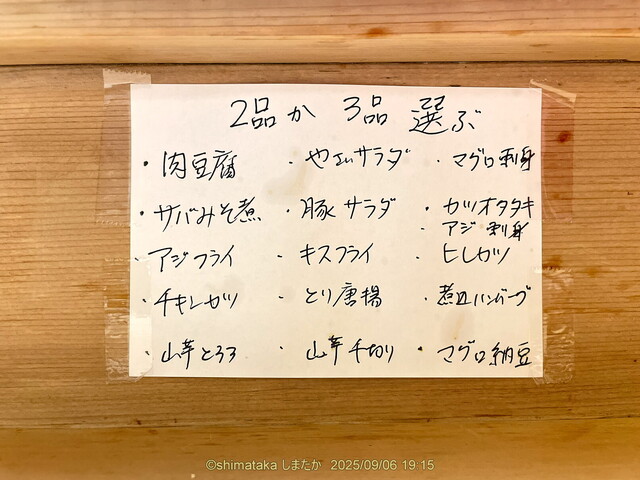 2品か3品 選ぶ
・肉豆腐 ・やさいサラダ ・マグロ刺身
・サバみそ煮 ・豚サラダ ・カツオタタキ
・アジ刺身
・アジフライ ・キスフライ ・ヒレカツ
・チキンカツ ・とり唐揚 ・煮込ハンバーグ
・山芋とろろ ・山芋千切り ・マグロ納豆
©shimataka しまたか 2025/09/06 19:15